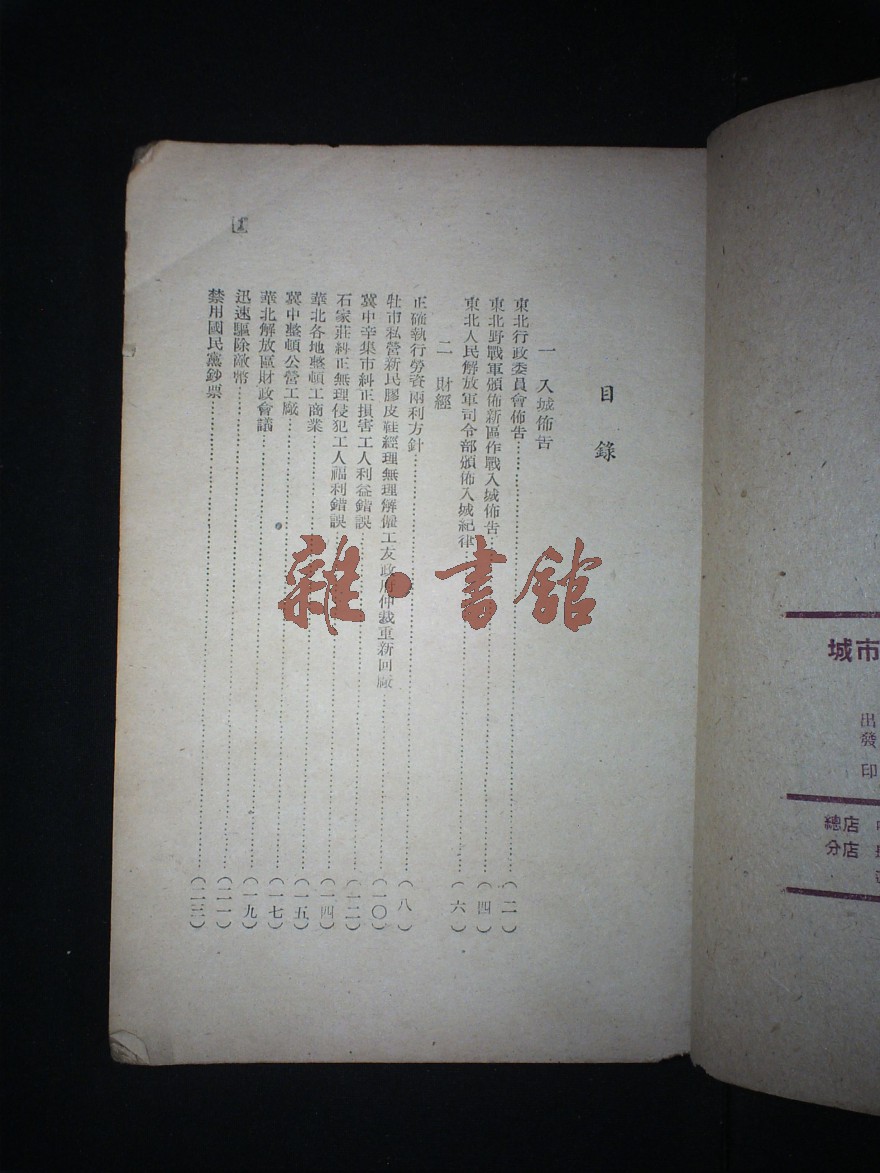 目錄
一 入城佈告
東北行政委員會佈告……(二)
東北野戰軍頒佈新區作戰入城佈告……(四)
東北人民解放軍司令部頒佈入城紀律……(六)
二 財經
正確執行勞資兩利方針……(八)
牡市私營新民膠皮鞋經理無理解僱工友政府仲裁重新回廠……(一〇)
冀中辛集市糾正損害工人利益錯誤……(一二)
石家莊糾正無理侵犯工人福利錯誤……(一四)
華北各地整頓工商業……(一五)
冀中整頓公營工廠……(一七)
華北解放區財政會議……(一九)
迅速驅除敵幣……(二一)
禁用國民黨鈔票……(二三)
1
雜·書館
城市
出
發
印
總店
分店